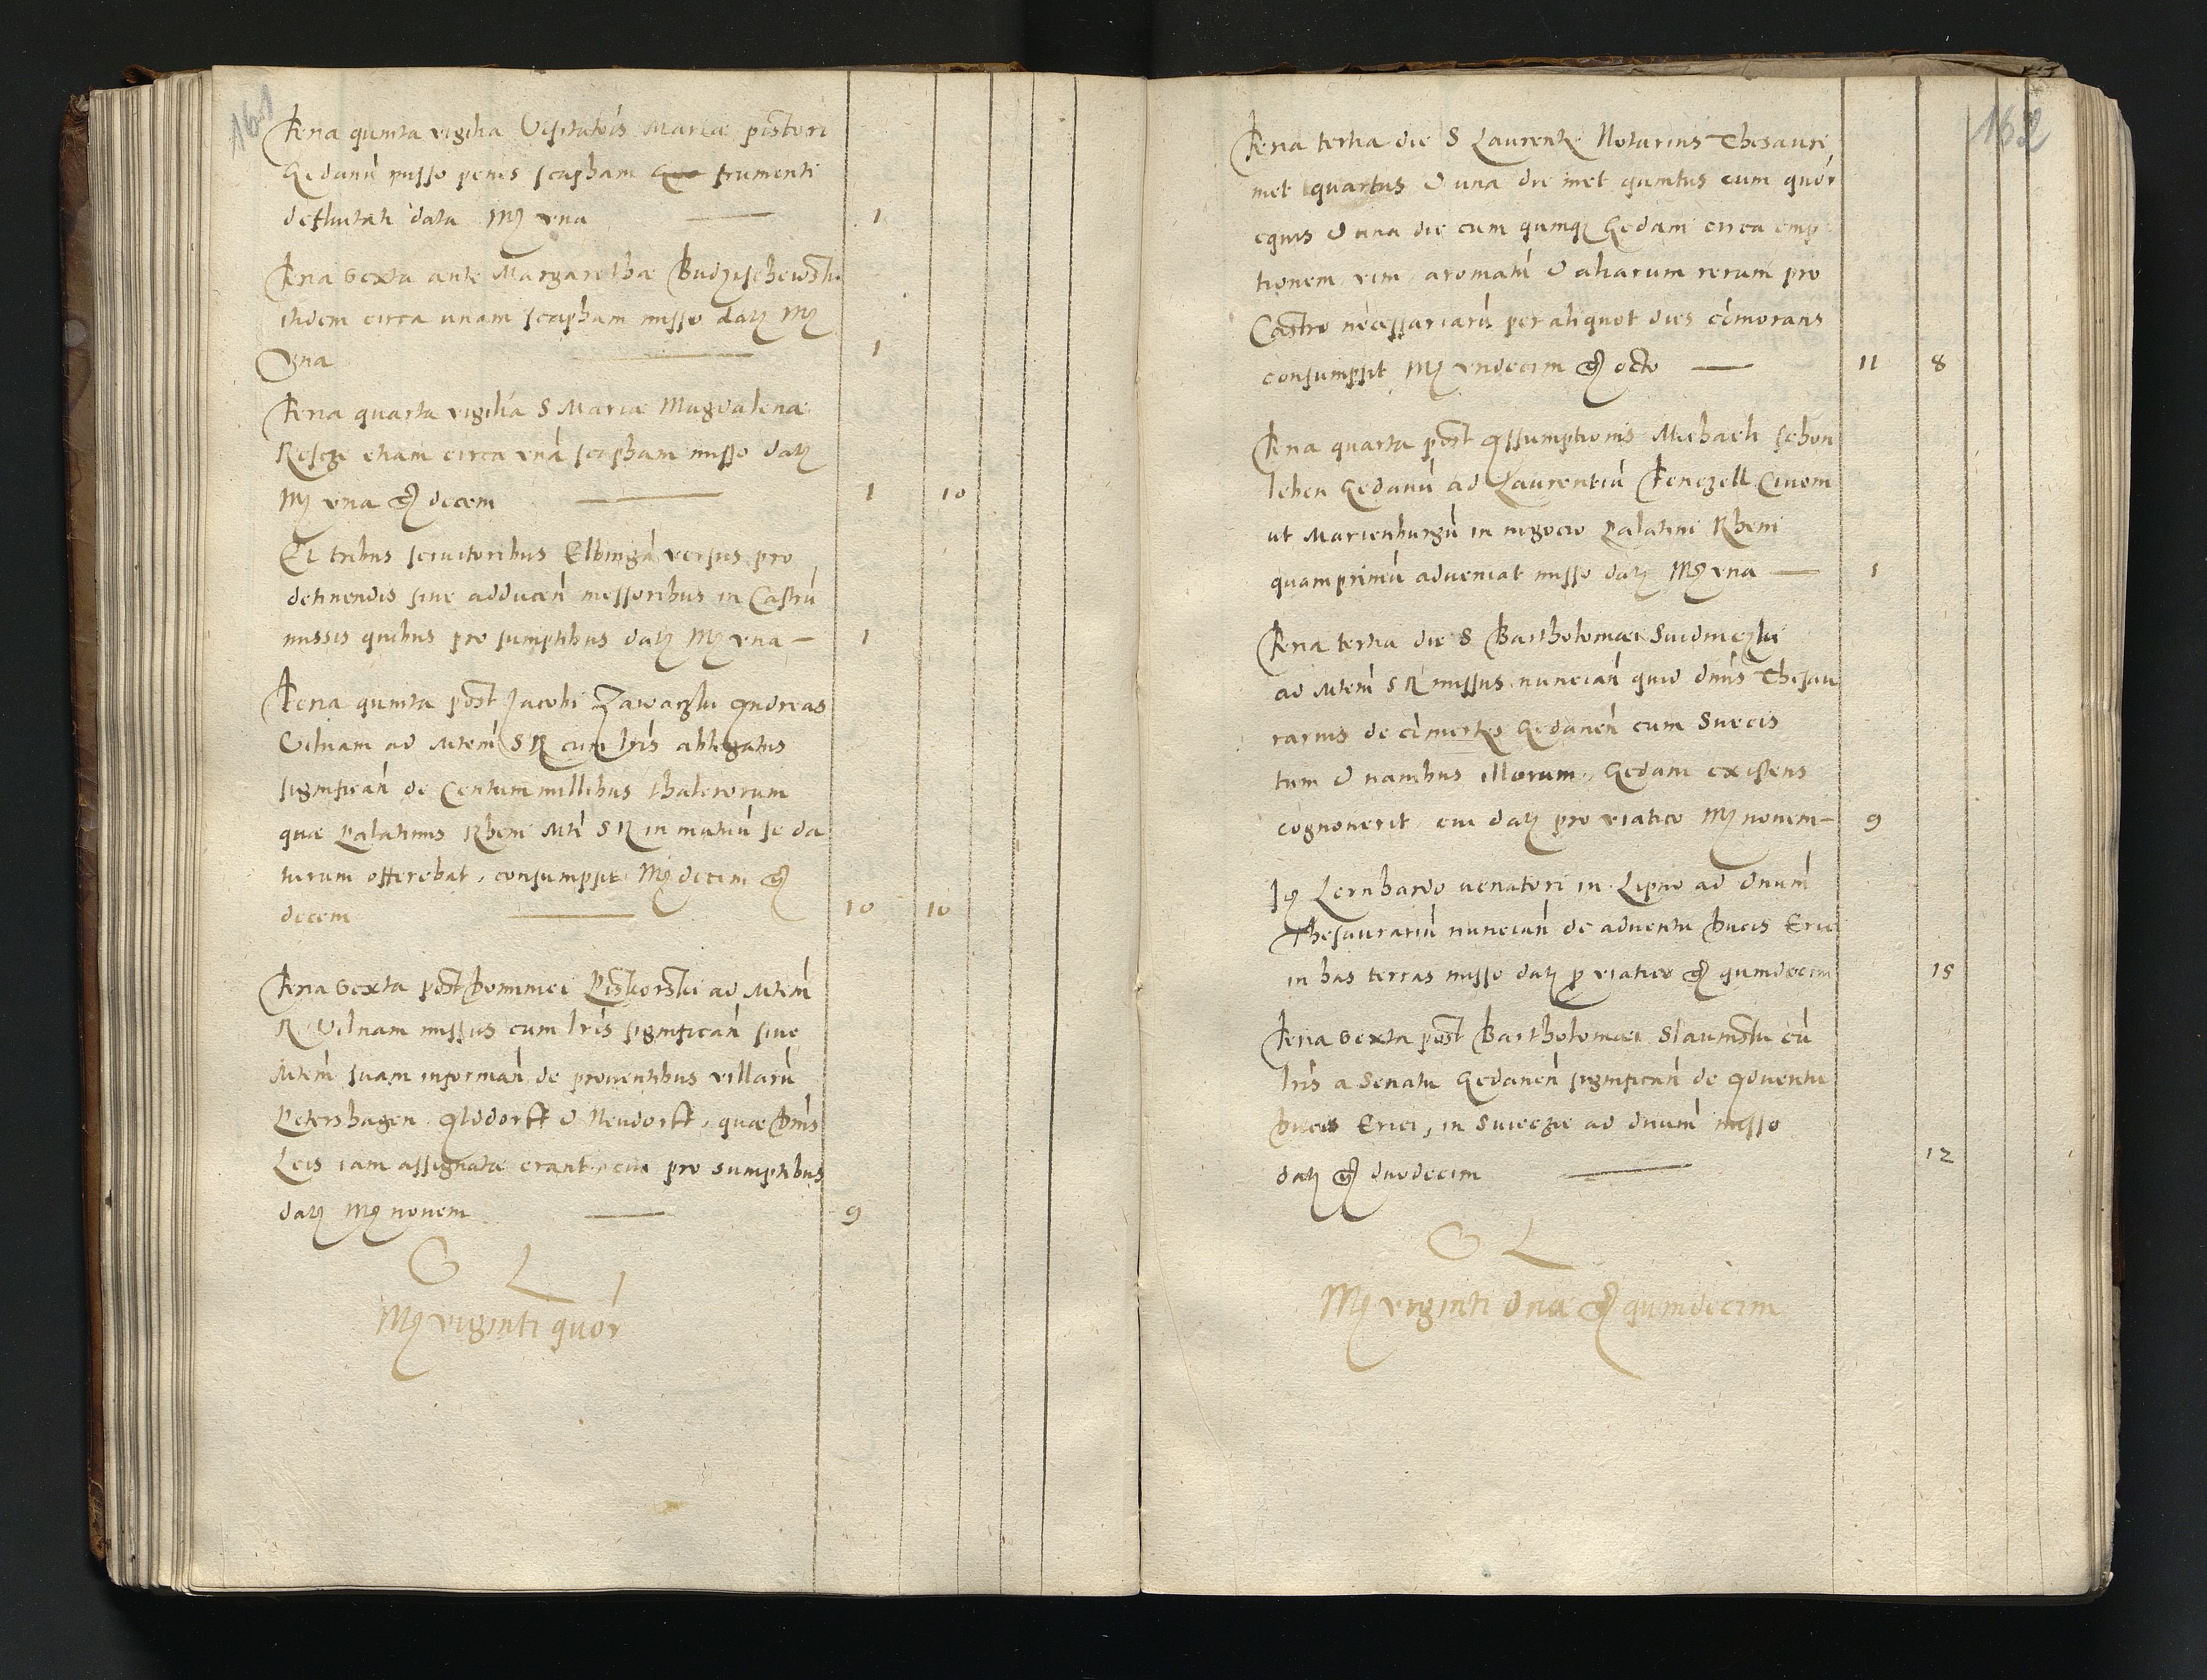 161
Feria quinta vigilia Visitatois Mariæ pistori
Gedanū misso penes scapham frumenti
defluitati data Mr vna 1
Feria Sexta ante Margarethæ Budzischewski
itidem circa unam scapham misso datæ Mr
Vna 1
Feria quarta vigilia S Mariæ Magdalenæ
etiam circa vnā scapham misso datæ
Mr vna gr decem 1 10
Et tribus servitoribus Elbingā versus pro
detinendis sive adducen messoribus in Castrū
missis quibus pro sumptibus datæ Mr vna 1
Feria quinta post Jacobi Zawaczki Andreas
Vilnam ad Mtem S R cum lris ablegatus
significan de Centum millibus thalerorum
quæ Palatinus Rheni Mti S R in mutuū se da
turum offerebat, consumpsit Mr decem gr
decem 10 10
Feria Sexta post Dominici Piskorski ad Mtem
R Vilnam missus cum lris significan sive
Mtem suam informan de proventibus villarū
Petershagen Alddorff & Neudorff, quæ Dnis
Leis iam assignatæ erant, cui pro sumptibus
datæ Mr novem 9
S L
Mr viginti quor
162
Feria tertia die S Laurentii Notarius Thesauri
met quartus & una die met quintus cum quor
equis & una die cum quinqz Gedani circa emp
tionem vini aromatū & aliarum rerum pro
Castro necessariarū per aliquot dies cōmorans
consumpsit Mr vndecim gr octo 11 8
Feria quarta post Assumptionis Michaeli schon
leben Gedanū ad Laurentiū Fenczell Civem
ut Marienburgū in negocio Palatini Rheni
quamprimū adveniat misso datæ Mr vna 1
Feria tertia die S Bartholomæi Swidniczki
ad Mtem S R missus nuncian quid dnus Thesau
rarius de cōmertio Gedanen cum Suecis
tum & navibus illorum, Gedani existens
cognoverit cui datæ pro viatico Mr novem 9
It Lernhardo venatori in Lipno ad dnum
Thesaurariū nuncian de adventu Ducis Erici
in has terras misso datæ p viatico gr quindecim 15
Feria Sexta post Bartholomæi Slawinski cū
lris a Senatu Gedanen significan de Adventu
Ducis Erici, in Swieczie ad dnum misso
datæ gr duodecim 12
S L
Mr viginti Una gr quindecim